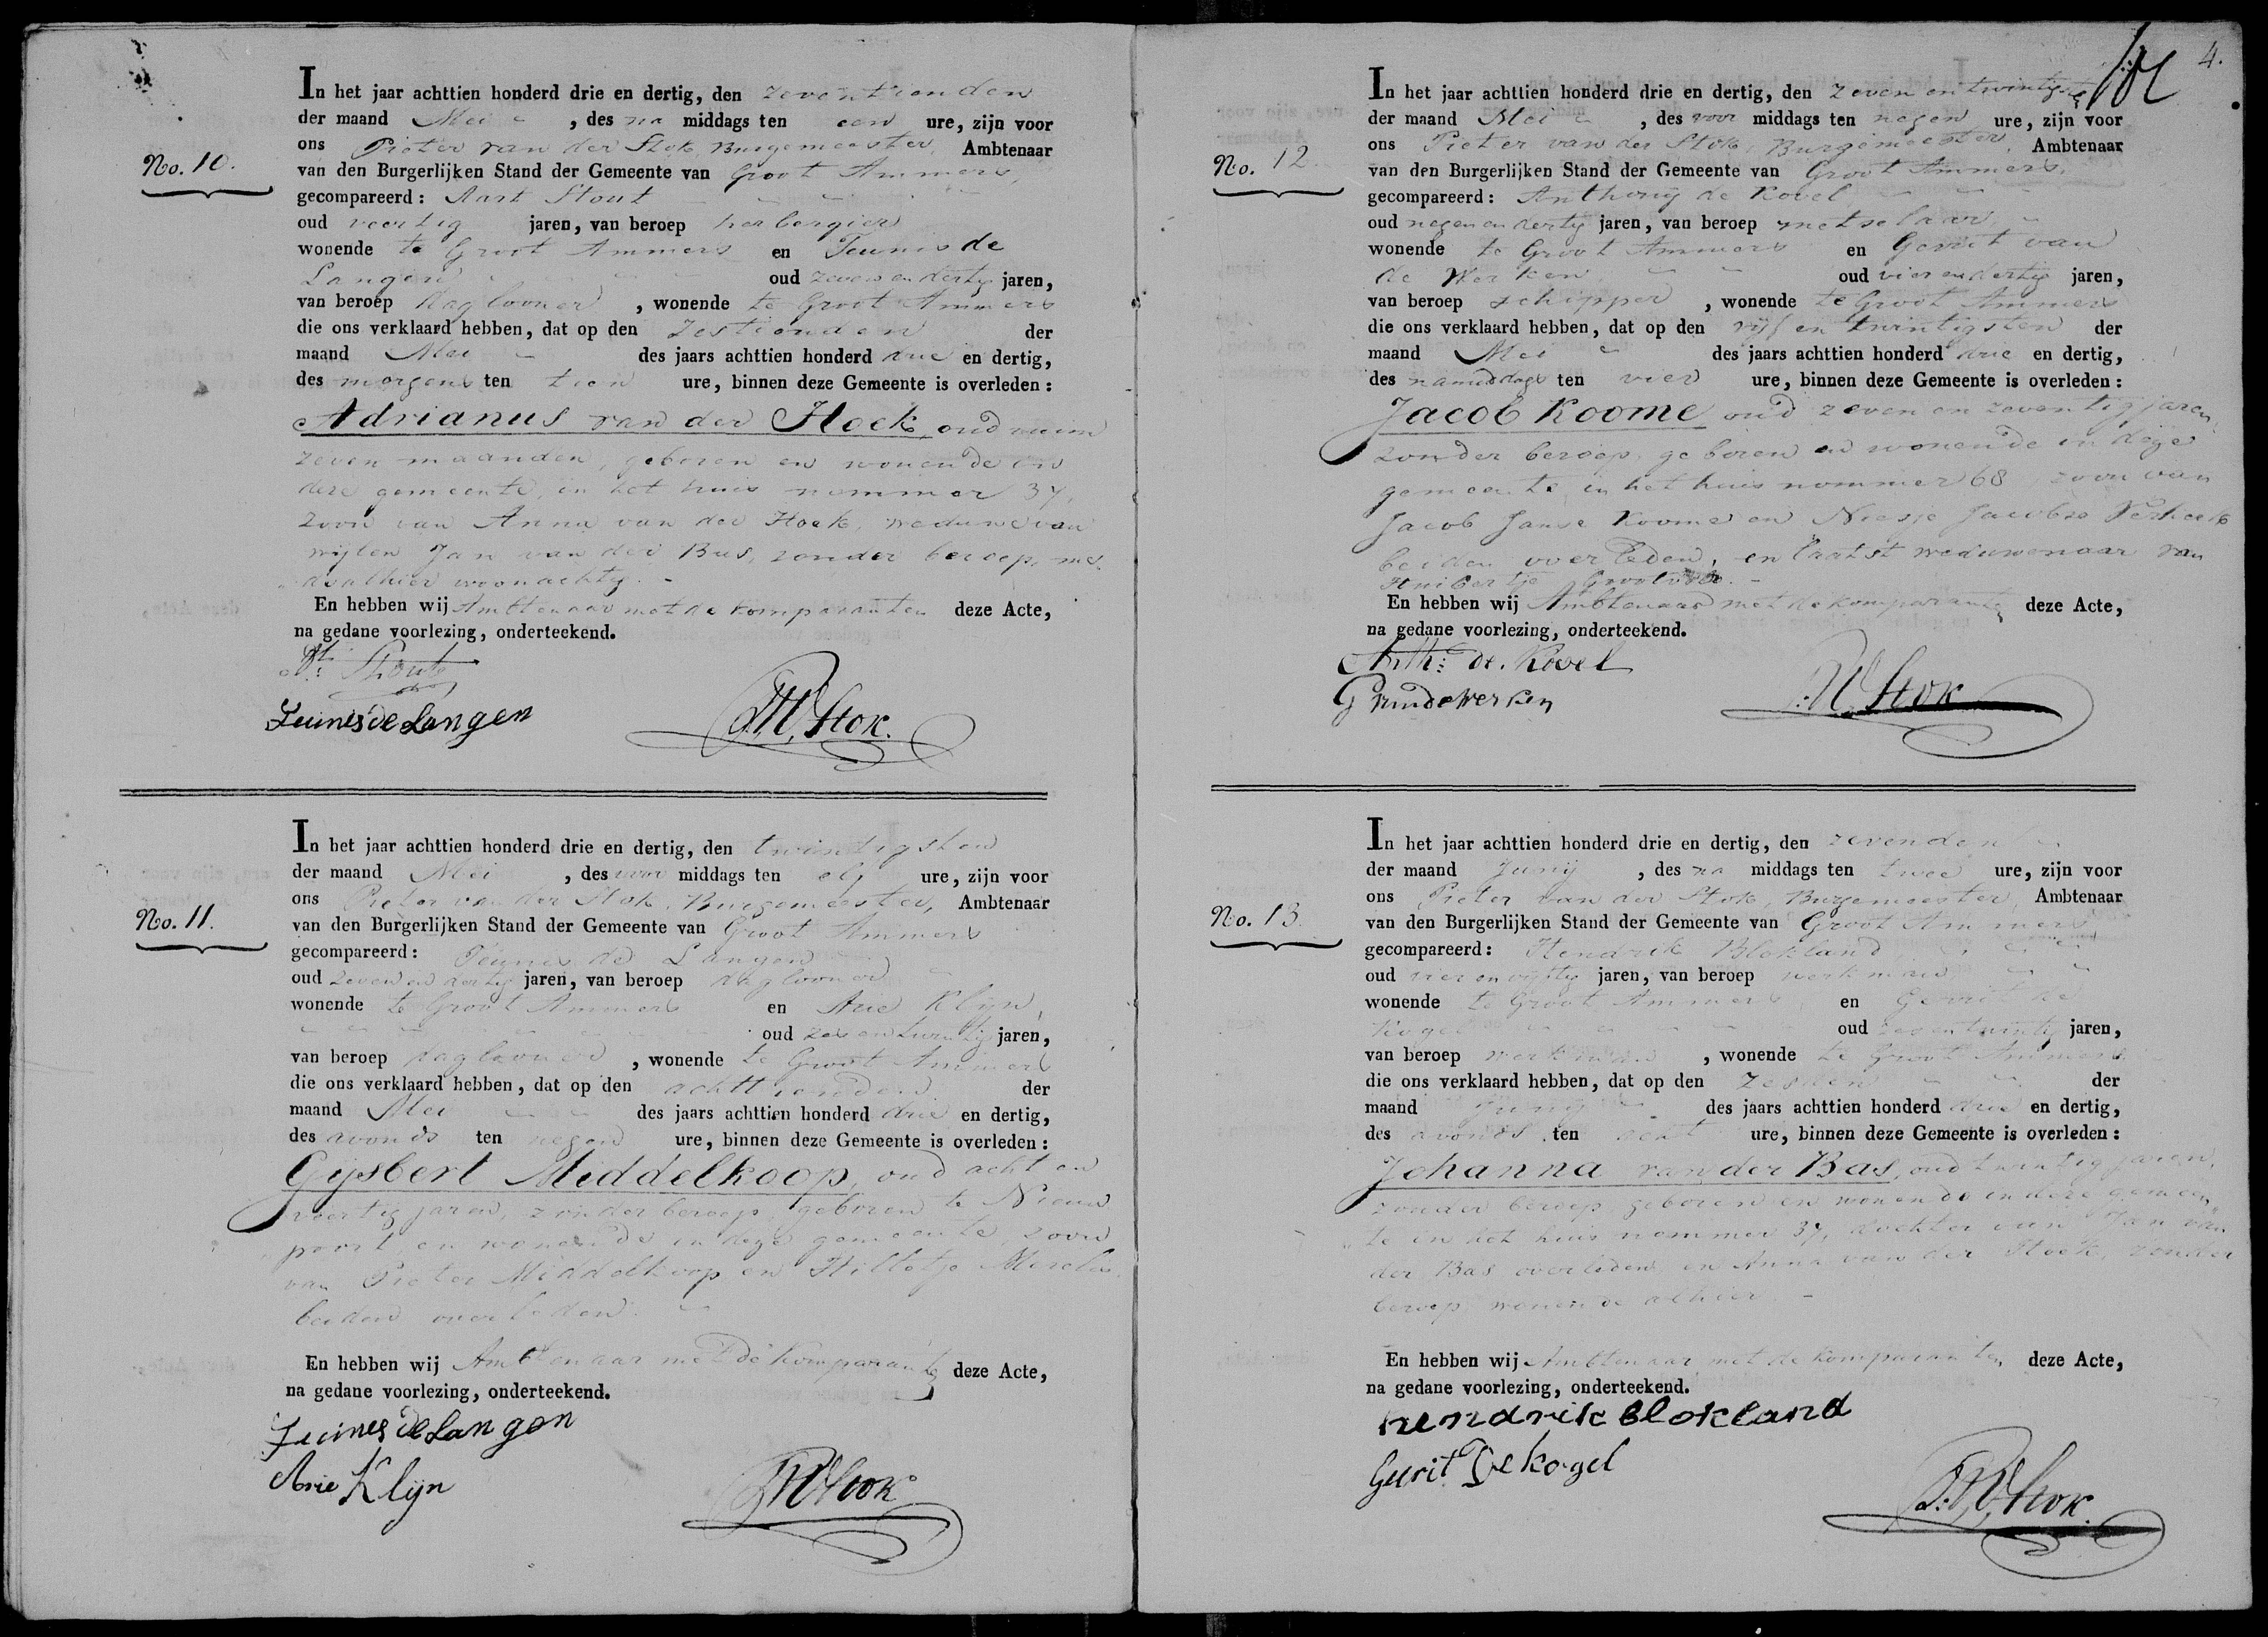 No. 10.
In het jaar achttien honderd drie en dertig, den zeventienden
der maand Mei , des na middags ten een ure, zijn voor
ons Pieter van der Stok, Burgemeester, Ambtenaar
van den Burgerlijken Stand der Gemeente van Groot Ammers,
gecompareerd: Aart Stout
oud veertig jaren, van beroep herbergier
wonende te Groot Ammers en Teunis de
Langen oud zeven en dertig jaren,
van beroep daglooner , wonende te Groot Ammers
die ons verklaard hebben, dat op den zestienden der
maand Mei des jaars achttien honderd drie en dertig,
des morgens ten tien ure, binnen deze Gemeente is overleden:
Adrianus van der Hoek, oud ruim
zeven maanden, geboren en wonende in
deze gemeente, in het huis nommer 37,
zoon van Anna van der Hoek, weduwe van
wijlen Jan van der Bas, zonder beroep, me,
de alhier woonachtig. -
En hebben wij Ambtenaar met de komparanten deze Acte,
na gedane voorlezing, onderteekend.
At: Stout
Teunis de Langen
P.V.D. Stok.
No. 11.
In het jaar achttien honderd drie en dertig, den twintigsten
der maand Mei , des voor middags ten elf ure, zijn voor
ons Pieter van der Stok, Burgemeester, Ambtenaar
van den Burgerlijken Stand der Gemeente van Groot Ammers
gecompareerd: Teunis de Langen
oud zeven en dertig jaren, van beroep daglooner
wonende te Groot Ammers en Arie Klijn,
oud zes en twintig jaren,
van beroep daglooner , wonende te Groot Ammers
die ons verklaard hebben, dat op den achttienden der
maand Mei des jaars achttien honderd drie en dertig,
des avonds ten negen ure, binnen deze Gemeente is overleden:
Gijsbert Middelkoop, oud acht en
veertig jaren, zonder beroep, geboren te Nieuw
poort, en wonende in deze gemeente, zoon
van Pieter Middelkoop en Hilletje
beiden overleden.
En hebben wij Ambtenaar met de komparanten deze Acte,
na gedane voorlezing, onderteekend.
Teunes de Langen
Arie Klijn
P.V.D. Stok
4.
No. 12.
In het jaar achttien honderd drie en dertig, den zeven en twintigste
der maand Mei , des voor middags ten negen ure, zijn voor
ons Pieter van der Stok, Burgemeester, Ambtenaar
van den Burgerlijken Stand der Gemeente van Groot Ammers,
gecompareerd: Anthonij de Kovel
oud negen en dertig jaren, van beroep metselaar
wonende te Groot Ammers en Gerrit van
de Werken oud vier en dertig jaren,
van beroep schipper , wonende te Groot Ammers
die ons verklaard hebben, dat op den vijf en twintigsten der
maand Mei des jaars achttien honderd drie en dertig,
des namiddags ten vier ure, binnen deze Gemeente is overleden:
Jacob Koome oud zeven en zeventig jaren,
zonder beroep, geboren en wonende in deze
gemeente in het huis nommer 68 zoon van
Jacob Janse Koome en Niesje Jacobse Verhoek
beiden overleden, en laatst weduwenaar van
Huibertje
En hebben wij Ambtenaar met de komparanten deze Acte,
na gedane voorlezing, onderteekend.
Anth: de. Kovel
G vandewerken
P.V.D. Stok
No. 13.
In het jaar achttien honderd drie en dertig, den zevenden
der maand Junij , des na middags ten twee ure, zijn voor
ons Pieter van der Stok, Burgemeester, Ambtenaar
van den Burgerlijken Stand der Gemeente van Groot Ammers
gecompareerd: Hendrik Blokland
oud vier en vijftig jaren, van beroep werkman
wonende te Groot Ammers en Gerrit de
Kogel oud zes en twintig jaren,
van beroep werkman , wonende te Groot Ammers
die ons verklaard hebben, dat op den zesden der
maand Junij des jaars achttien honderd drie en dertig,
des avonds ten acht ure, binnen deze Gemeente is overleden:
Johanna van der Bas, oud twintig jaren,
zonder beroep, geboren en wonende in deze gemeen
te in het huis nommer 37, dochter van Jan van
der Bas overleden en Anna van der Hoek, zonder
beroep, wonende alhier. -
En hebben wij Ambtenaar met de komparanten deze Acte,
na gedane voorlezing, onderteekend.
hendrik Blokland
Gerrit De kogel
P.V.D. Stok.